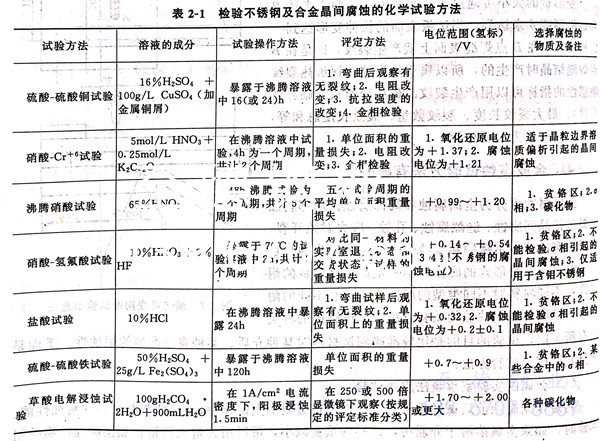 表 2-1 检验不锈钢及合金晶间腐蚀的化学试验方法
试验方法
溶液的成分
试验操作方法
评定方法
电位范围(氢标)
/V
选择腐蚀的
物质及备注
硫酸-硫酸铜试验
16%H₂SO₄ +
100g/L CuSO₄(加
金属铜屑)
暴露于沸腾溶液
中16(或24)h
1. 弯曲后观察有
无裂纹;2. 电阻改
变;3. 抗拉强度的
改变;4. 金相检验
硝酸-Cr⁺⁶试验
5mol/L HNO₃+
0.25mol/L
在沸腾溶液中试
验,4h为一个周期,
个周期
1. 单位面积的重
量损失;2. 电阻改
变;3. 金相检验
1. 氧化还原电位
为+1.37;2. 腐蚀
电位为+1.21
适于晶粒边界溶
质偏析引起的晶间
腐蚀
沸腾硝酸试验
沸腾
个周期,共计 个
周期
周期的
平均单位面积重量
损失
+0.99～+1.20
1. 贫铬区;2.σ
相;3. 碳化物
硝酸-氢氟酸试验
HF
个周期
材料
重量损失
+0.14～+0.54
不锈钢的腐
蚀电位)
1. 贫铬区;2. 不
能检验σ相引起的
晶间腐蚀;3. 仅适
用于含钼不锈钢
盐酸试验
10%HCl
在沸腾溶液中暴
露24h
1. 弯曲试样后观
察有无裂纹;2. 单
位面积上的重量损
失
1. 氧化还原电位
为+0.32;2. 腐蚀
电位为+0.2±0.1
1. 贫铬区;2. 不
能检验σ相引起的
晶间腐蚀
硫酸-硫酸铁试验
50%H₂SO₄ +
25g/L Fe₂(SO₄)₃
暴露于沸腾溶液
中120h
单位面积的重量
损失
+0.7～+0.9
1. 贫铬区;2. 某
些合金中的σ相
草酸电解浸蚀试
验
100gH₂CO₄ ·
2H₂O+900mLH₂O
在1A/cm² 电流
密度下,阳极浸蚀
1.5min
在250或500倍
显微镜下观察(按规
定的评定标准分类)
+1.70～+2.00
或更大
各种碳化物